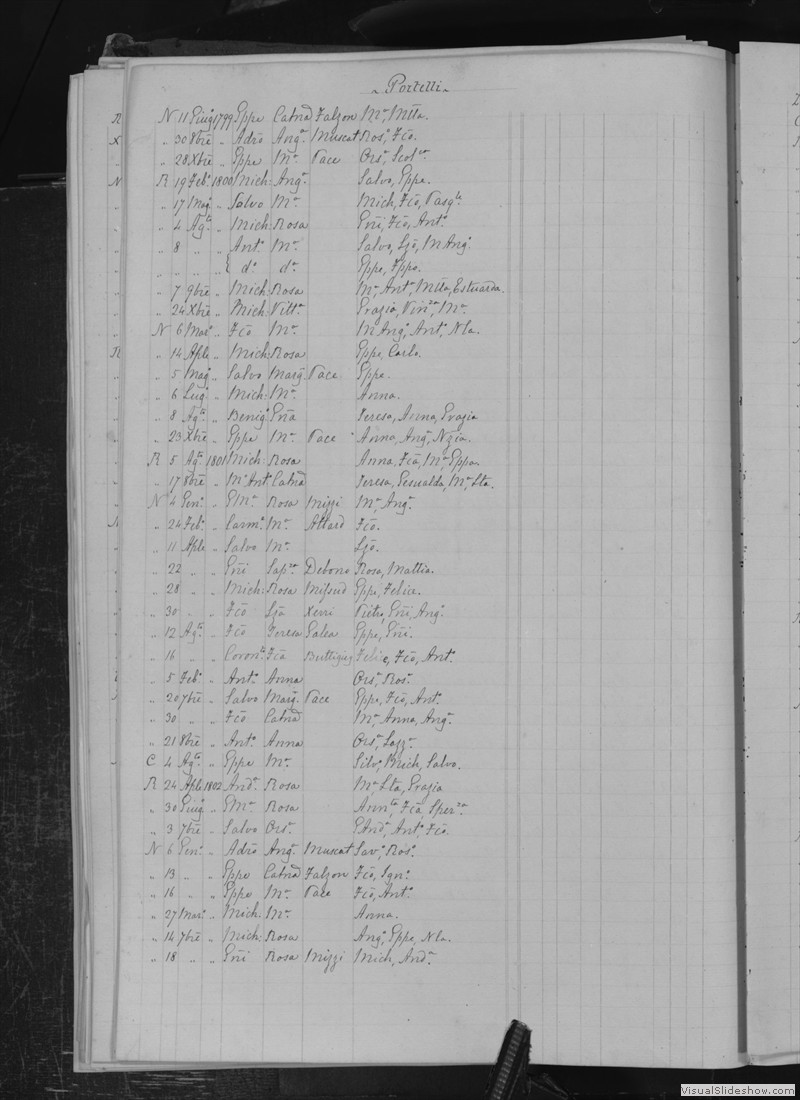 ~ Portelli ~
R N 11 Giug.º 1799 Eppe Catnã Falzon Mª, Mtta.
X " 30 8bre " Adrõ Angª Muscat Rosª, Fcõ.
" " 28 Xbre " Eppe Mª Pace Orsª, Scolª.
N R 19 Febº 1800 Mich: Angª Salvo, Eppe.
" " 17 Magº " Salvo Mª Mich, Fcõ, Pasqle.
" " 4 Agto " Mich: Rosa Gñi, Fcõ, Antº.
" " 8 " " Antº Mª Salvo, Ljõ, M Angº.
" " " " " E dº dª Eppe, Fppo.
" " 7 9bre " Mich: Rosa Mª, Antº, Mtta, Estuarda.
" " 24 Xbre " Mich: Vittª Grazia, Vinza, Mª.
" N 6 Marº " Fcõ Mª M Angº, Antº, Nla.
R " 14 Aple " Mich: Rosa Eppe, Carlo.
" " 5 Magº " Salvo Margª Pace Eppe.
" " 6 Lugº " Mich: Mª Anna.
" " 8 Agto " Benigº Gña Teresa, Anna, Grazia
" " 23 Xbre " Eppe Mª Pace Anna, Angª, Nzia.
" R 5 Agto 1801 Mich: Rosa Anna, Fcã, Mª, Eppa.
" " 17 8bre " Mº Antº Catnã Teresa, Gesualda, Mª, Lta.
" N 4 Genº " GMª Rosa Mizzi Mª, Angª.
N " 24 Febº " Carmº Mª Attard Fcõ.
" " 11 Aple " Salvo Mª Ljõ.
" " 22 " " Gñi Sapza Debono Rosa, Mattia.
" " 28 " " Mich: Rosa Mifsud Eppe, Felice.
" " 30 " " Fcõ Ljã Xerri Pietro, Gñi, Angº.
" " 12 Agto " Fcõ Teresa Galea Eppe, Gñi.
" " 16 " " Coronto Fcã Buttigieg Felice, Fcõ, Antº.
" 5 Febº " Antº Anna Orsª, Rosª.
" 20 7bre " Salvo Margª Pace Eppe, Fcõ, Antº.
" 30 " " Fcõ Catnã Mª, Anna, Angª.
" 21 8bre " Antº Anna Orsª, Lazzº.
C 4 Agto " Eppe Mª Silvº, Mich, Salvo.
R 24 Aple 1802 Andª Rosa Mª, Lta, Grazia
" 30 Giugº " GMª Rosa Annta, Fcã, Sperza.
" 3 7bre " Salvo Orsª GAndª, Antº, Fcõ.
N 6 Genº " Adrõ Angª Muscat Savª, Rosª.
" 13 " " Eppe Catnã Falzon Fcõ, Ignº.
" 16 " " Eppe Mª Pace Fcõ, Antº.
" 27 Marº " Mich: Mª Anna.
" 14 7bre " Mich: Rosa Angº, Eppe, Nla.
" 18 " " Gñi Rosa Mizzi Mich, Andª.
VisualSlideshow.com